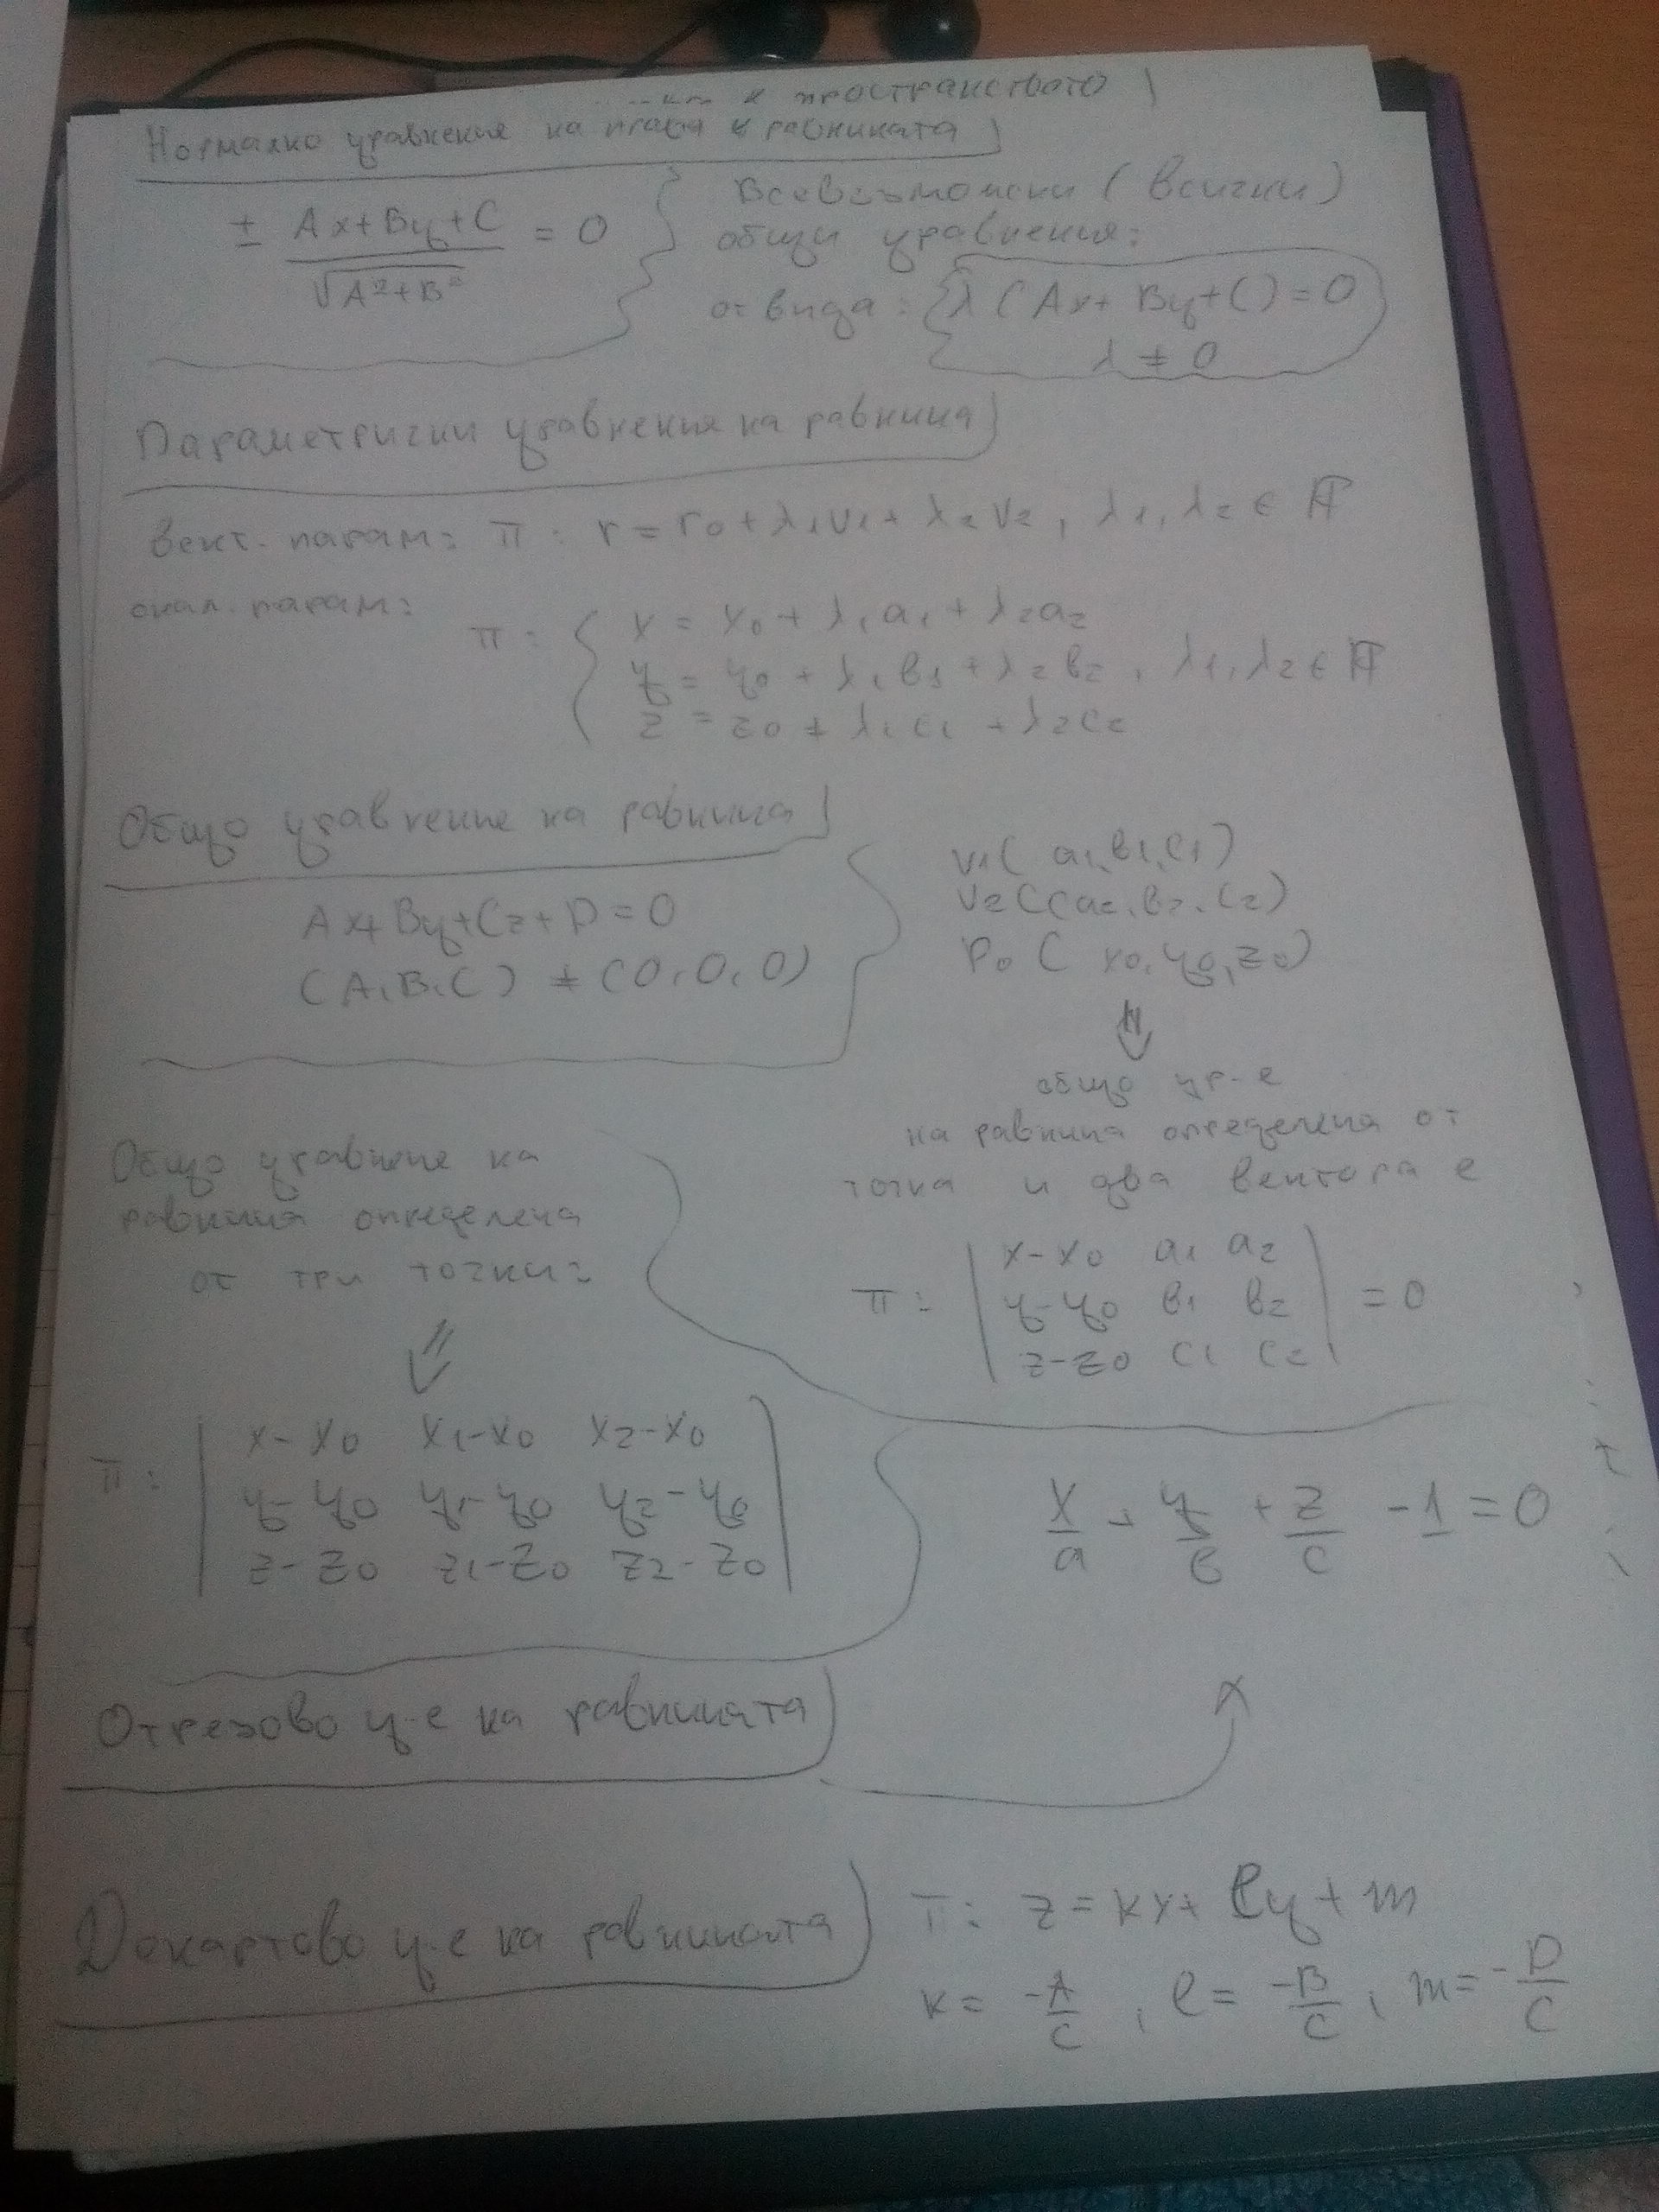 в пространството
Нормално уравнение на права в равнината
± Ax+By+C / √A²+B² = 0
Всевъзможни (всички)
общи уравнения:
от вида: λ(Ax+By+C)=0
λ ≠ 0
Параметрични уравнения на равнина
Вект. парам: π: r = r₀ + λ₁v₁ + λ₂v₂, λ₁, λ₂ ∈ ℝ
скал. парам:
π: { x = x₀ + λ₁a₁ + λ₂a₂
y = y₀ + λ₁b₁ + λ₂b₂, λ₁, λ₂ ∈ ℝ
z = z₀ + λ₁c₁ + λ₂c₂
Общо уравнение на равнина
Ax+By+Cz+D=0
(A,B,C) ≠ (0,0,0)
v₁(a₁,b₁,c₁)
v₂((a₂,b₂,c₂)
P₀(x₀,y₀,z₀)
⇓
общо ур-е
на равнина определена от
точка и два вектора е
π: | x-x₀ a₁ a₂ |
| y-y₀ b₁ b₂ | = 0
| z-z₀ c₁ c₂ |
Общо уравние на
равнина определена
от три точки:
⇓
π: | x-x₀ x₁-x₀ x₂-x₀ |
| y-y₀ y₁-y₀ y₂-y₀ |
| z-z₀ z₁-z₀ z₂-z₀ |
x/a + y/b + z/c - 1 = 0
Отрезово у-е на равнината
Декартово у-е на равнината
π: z = kx + ly + m
k = -A/C, l = -B/C, m = -D/C